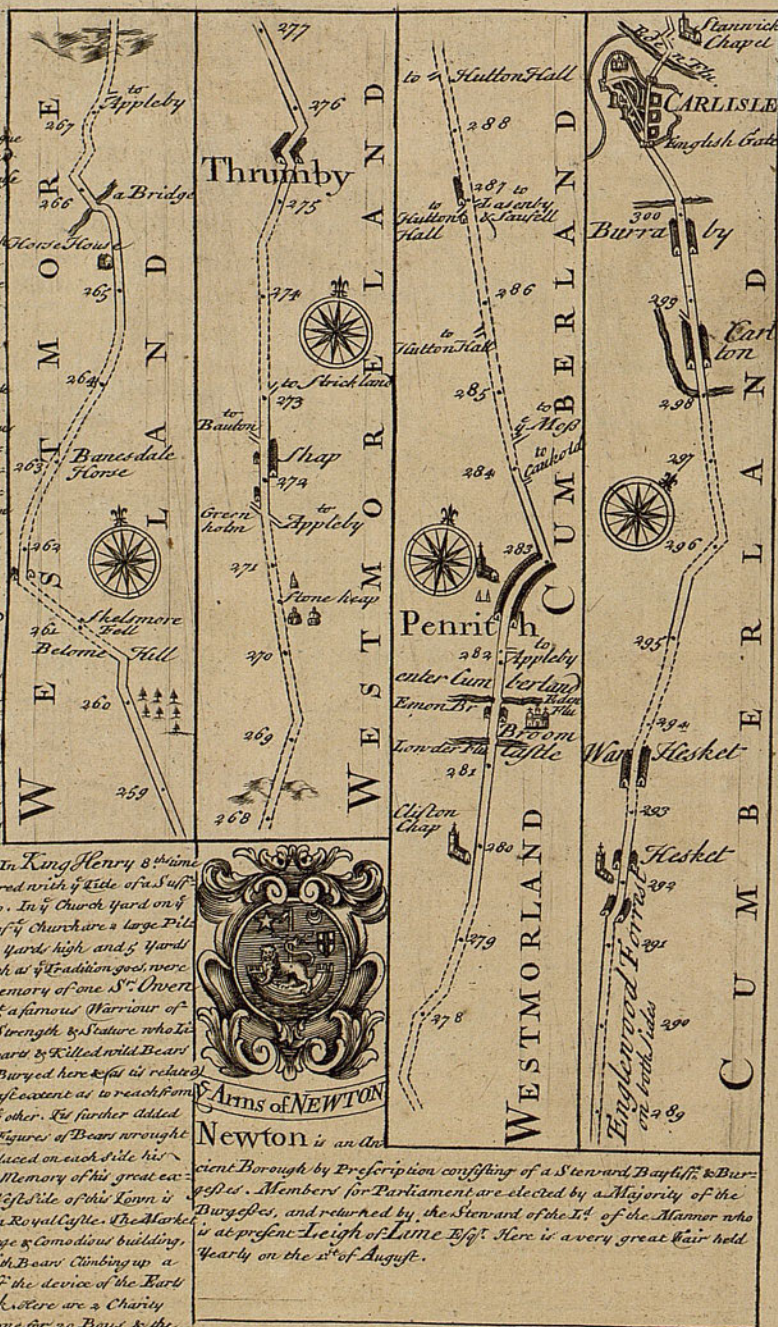 to
Appleby
267
266
a Bridge
Horse House
265
264
263
Banesdale
Horse
262
Skelsmore
Fell
261
Belome Hill
260
259
WESTMORELAND
277
276
Thrumby
275
274
to Strickland
273
to
Bauton
Shap
272
Green
holm
to
Appleby
271
Stone heap
270
269
268
WESTMORELAND
to Hutton Hall
288
287 to
Lasenby
& Saufell
to
Hutton
Hall
286
to
Hutton Hall
285
to
ÿ Moß
to
Caukold
284
283
Penrith
282
to
Appleby
enter Cumberland
Emon Br
Eden
Flu
Broom
Castle
Lowder Flu
281
Clifton
Chap
280
279
278
CUMBERLAND
WESTMORLAND
Stanwick
Chapel
Eden Flu.
CARLISLE
English Gate
300
Burra by
299
Carl
ton
298
297
296
295
294
War Hesket
293
Hesket
292
291
290
289
Englewood Forrest
on both sides
CUMBERLAND
In King Henry 8th time
red with ÿ Title of a Suff-
. In ÿ Church Yard on ÿ
of ÿ Church are 2 large Pil-
Yards high and 5 Yards
h as ÿ Tradition goes, were
emory of one Sr. Owen
a famous Warriour of
Strength & Stature who Li-
parts & Killed wild Bears
Buryed here & (as tis related)
ast extent as to reach from
other. Tis further added
Figures of Bears wrought
laced on each side his
Memory of his great ex-
West side of this Town is
a Royal Castle. The Market
ge & Comodious building,
th Bears Climbing up a
the device of the Earls
k. Here are 2 Charity
one for 20 Boys & the
ÿ Arms of NEWTON
Newton is an An
cient Borough by Prescription consisting of a Steward, Bayliff, & Bur-
geßes. Members for Parliament are elected by a Majority of the
Burgeßes, and returned by the Steward of the Ld. of the Mannor who
is at present Leigh of Lime Esqr. Here is a very great Fair held
Yearly on the 1st of August.